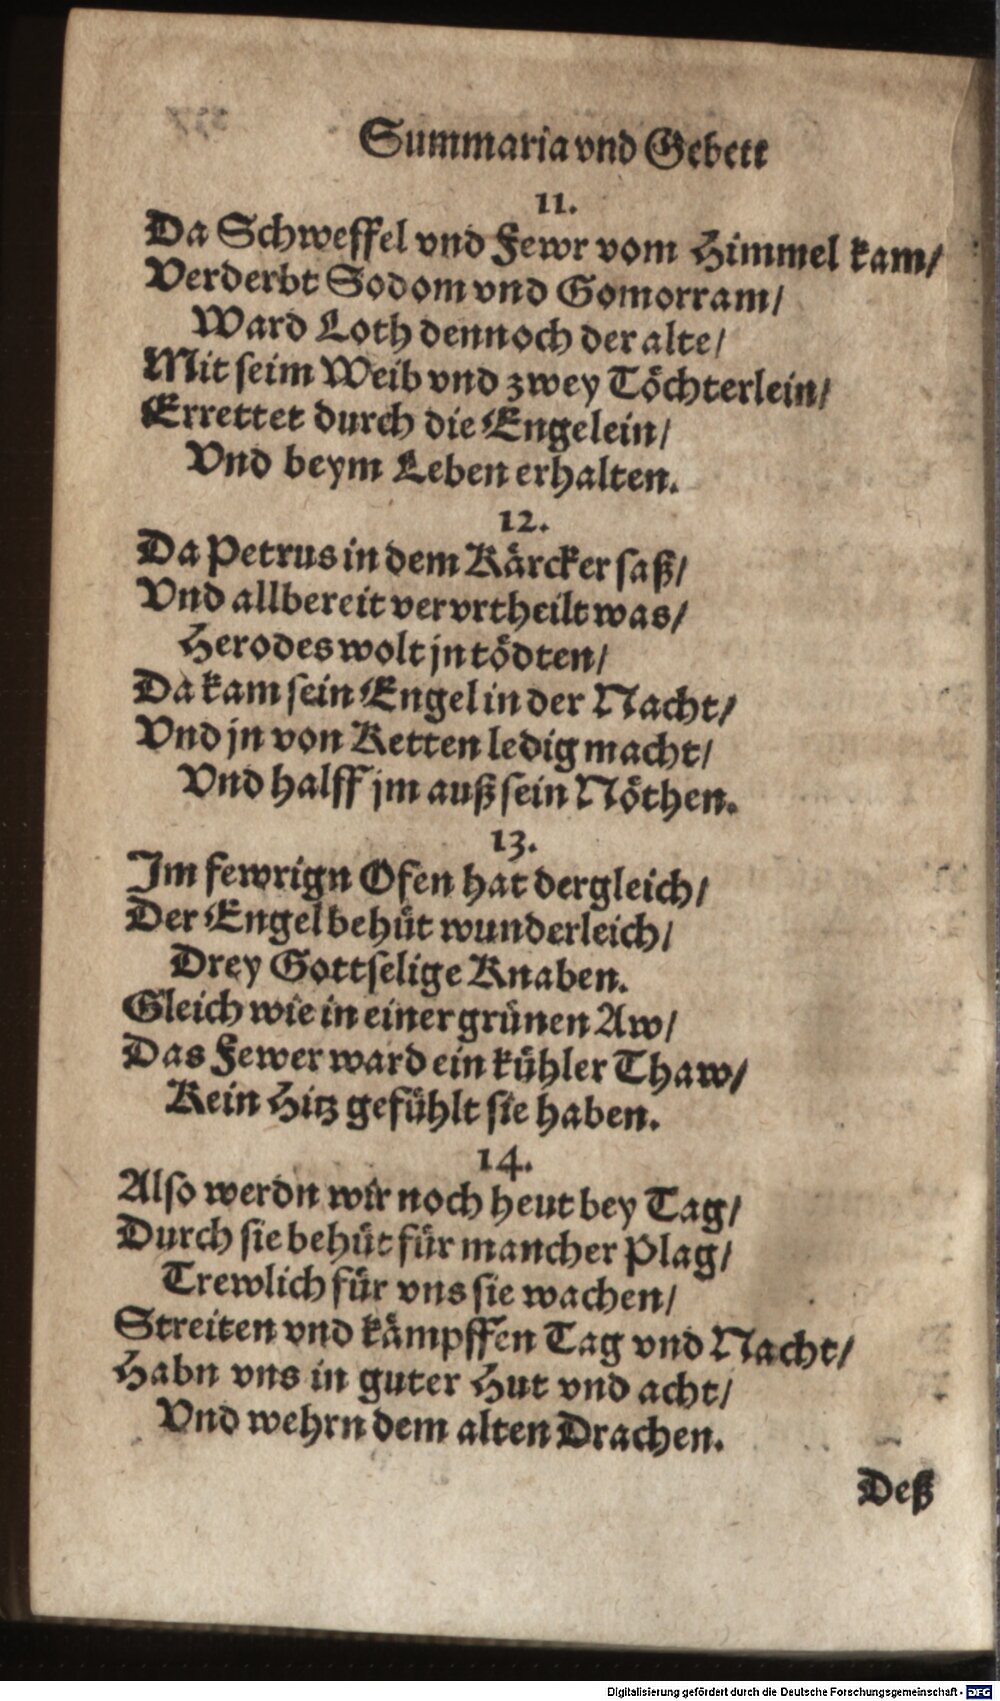 Summaria vnd Gebett
11.
Da Schweffel vnd Fewr vom Himmel kam/
Verderbt Sodom vnd Gomorram/
Ward Loth dennoch der alte/
Mit seim Weib vnd zwey Töchterlein/
Errettet durch die Engelein/
Vnd beym Leben erhalten.
12.
Da Petrus in dem Kärcker saß/
Vnd allbereit vervrtheilt was/
Herodes wolt jn tödten/
Da kam sein Engel in der Nacht/
Vnd jn von Ketten ledig macht/
Vnd halff jm auß sein Nöthen.
13.
Im fewrign Ofen hat dergleich/
Der Engel behüt wunderleich/
Drey Gottselige Knaben.
Gleich wie in einer grünen Aw/
Das Fewer ward ein kühler Thaw/
Kein Hitz gefühlt sie haben.
14.
Also werdn wir noch heut bey Tag/
Durch sie behüt für mancher Plag/
Trewlich für vns sie wachen/
Streiten vnd kämpffen Tag vnd Nacht/
Habn vns in guter Hut vnd acht/
Vnd wehrn dem alten Drachen.
Deß
Digitalisierung gefördert durch die Deutsche Forschungsgemeinschaft - DFG